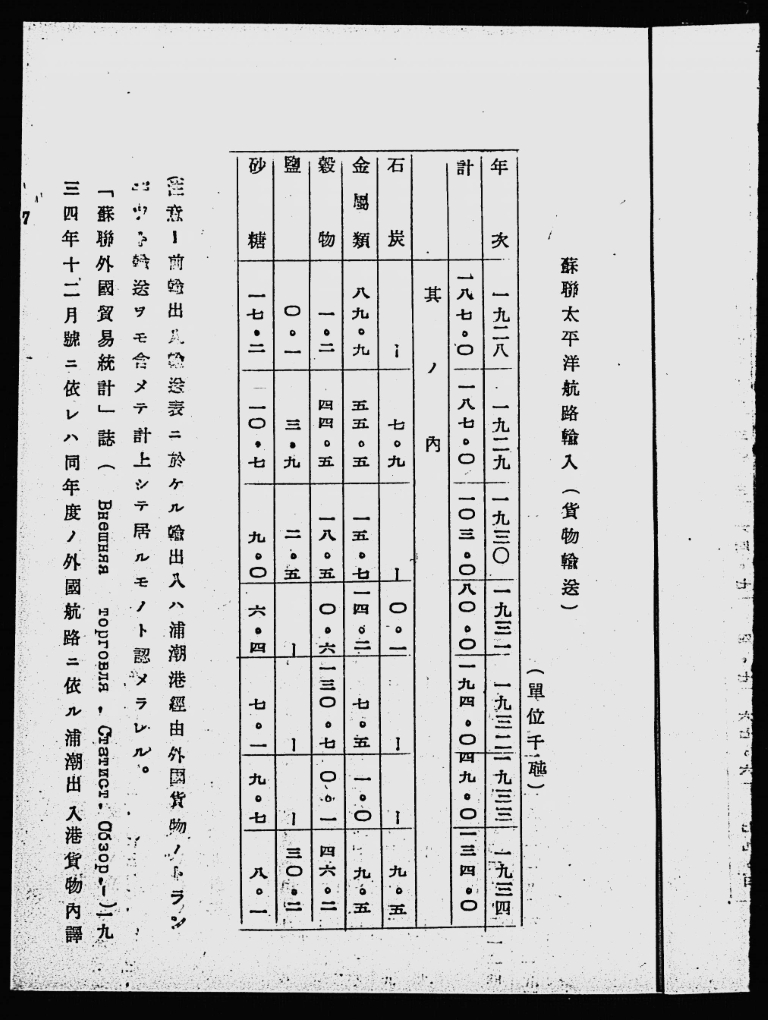 蘇聯太平洋航路輸入(貨物輸送)
(單位千瓲)
年次 一九二八 一九二九 一九三〇 一九三一 一九三二 一九三三 一九三四
計 一八七・〇 一八七・〇 一〇三・〇 八〇・〇 一九四・〇 四九・〇 一三四・〇
其ノ內
石炭 ー 七・九 ー 〇・一 ー ー 九・五
金屬類 八九・九 五五・五 一五・七 一四・二 七・五 一・〇 九・五
穀物 一・二 四四・五 一八・五 〇・六 一三〇・七 〇・一 四六・二
鹽 〇・一 三・九 二・五 ー ー ー 三〇・二
砂糖 一七・二 一〇・七 九・〇 六・四 七・一 九・七 八・一
(注意ー前輸出入輸送表ニ於ケル輸出入ハ浦潮港經由外國貨物ノトラン
輸送ヲモ含メテ計上シテ居ルモノト認メラレル。
「蘇聯外國貿易統計」誌(Внешняя торговля, Статист. Обзор.ー)一九
三四年十二月號ニ依レハ同年度ノ外國航路ニ依ル浦潮出入港貨物內譯
7